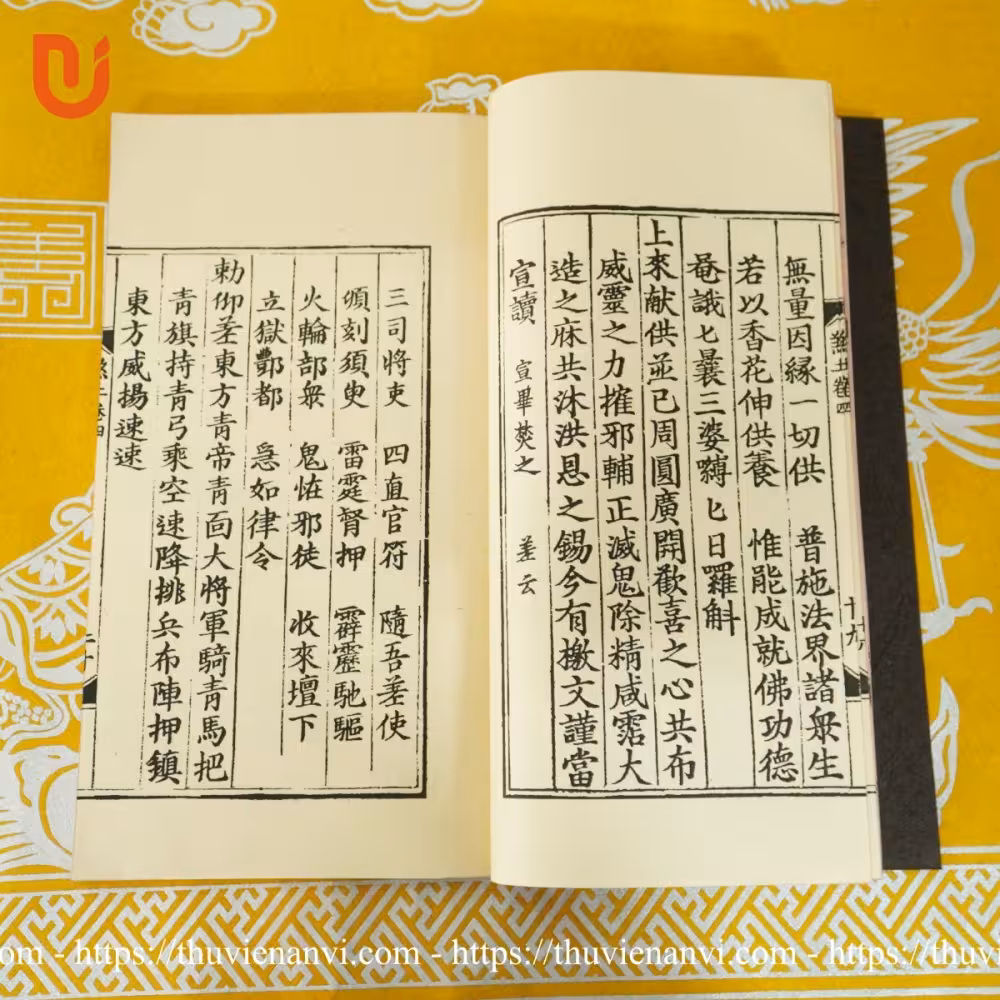 無量因縁一切供　普施法界諸衆生
若以香花伸供養　惟能成就佛功德
唵誐七曩三婆嚩匕日羅斛
上來献供並已周圓廣開歡喜之心共布
威靈之力摧邪輔正滅鬼除精咸霑大
造之庥共沐洪恩之錫今有檄文謹當
宣讀　宣畢焚之　差云
十九
三司將吏　四直官符　隨吾差使
頃刻須臾　雷霆督押　霹靂馳驅
火輪部衆　鬼怪邪徒　收來壇下
立獄酆都　急如律令
勅仰差東方青帝青面大將軍騎青馬把
青旗持青弓乘空速降排兵布陣押鎮
東方威揚速速
二十
https://thuvienanvi.com - https://thuvienanvi.com